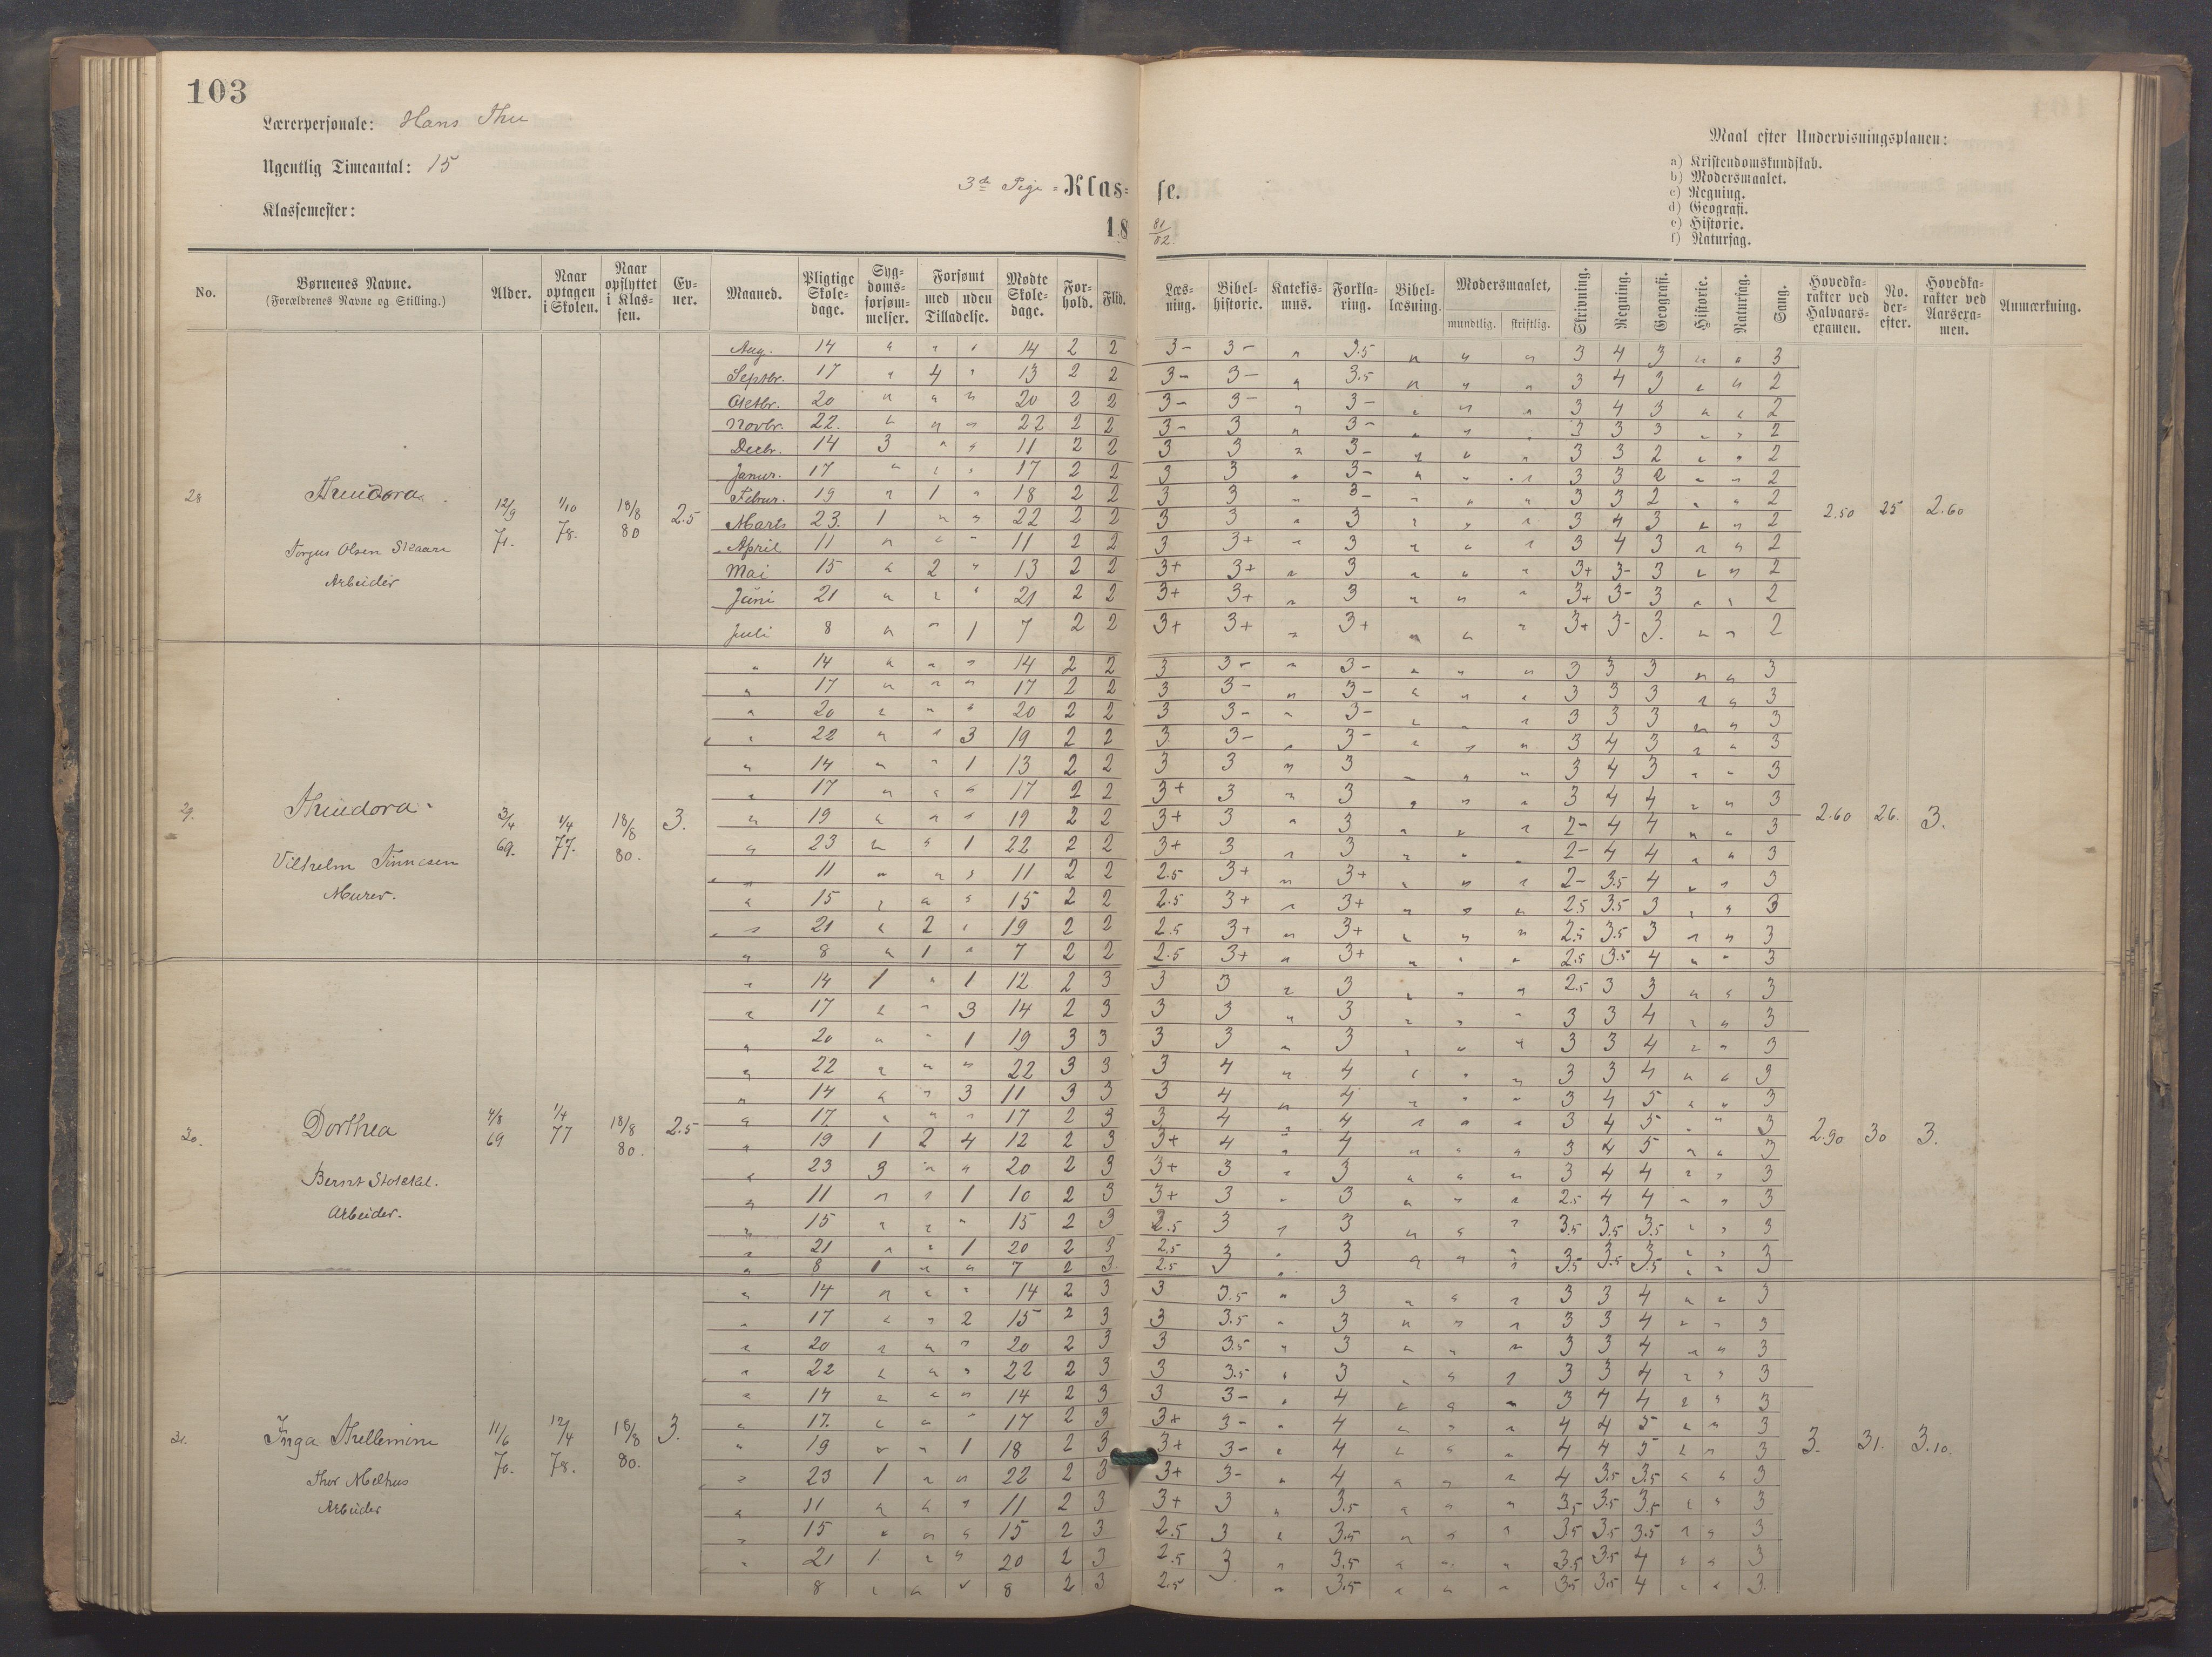 103
Lærerpersonale: Hans Thu
Ugentlig Timeantal: 15
Klassemester:
3de Pige = Klas= se.
18 81/82.
Maal efter Undervisningsplanen:
a) Kristendomskundskab.
b) Modersmaalet.
c) Regning.
d) Geografi.
e) Historie.
f) Naturfag.
No. | Børnenes Navne. (Forældrenes Navne og Stilling.) | Alder. | Naar optagen i Skolen. | Naar opflyttet i Klassen. | Evner. | Maaned. | Pligtige Skoledage. | Sygdomsforsømmelser. | Forsømt med | uden Tilladelse. | Mødte Skoledage. | Forhold. | Flid. | Læsning. | Bibelhistorie. | Katekismus. | Forklaring. | Bibellæsning. | Modersmaalet, mundtlig. | skriftlig. | Skrivning. | Regning. | Geografi. | Historie. | Naturfag. | Sang. | Hovedkarakter ved Halvaarsexamen. | No. derefter. | Hovedkarakter ved Aarsexamen. | Anmærkning.
28 Theodora 12/9 71. 1/10 78. 18/8 80 2.5
Torgus Olsen Skaare
Arbeider
Aug. 14 " " " 14 2 2 3- 3- " 3.5 " " " 3 4 3 " " 3
Septbr. 17 " 4 " 13 2 2 3- 3- " 3.5 " " " 3 4 3 " " 2
Oktbr. 20 " " " 20 2 2 3- 3- " 3- " " " 3 4 3 " " 2
Novbr. 22. " " " 22 2 2 3- 3 " 3- " " " 3 3 3 " " 2
Decbr. 14 3 " " 11 2 2 3 3 " 3- " " " 3 3 2 " " 2
Janur. 17 " " " 17 2 2 3 3 " 3- " " " 3 3 2 " " 2
Februr. 19 " 1 " 18 2 2 3 3 " 3- " " " 3 3 2 " " 2
Marts 23. 1 " " 22 2 2 3 3 " 3 " " " 3 4 3 " " 2
April 11 " " " 11 2 2 3 3+ " 3 " " " 3 4 3 " " 2
Mai 15 " 2 " 13 2 2 3+ 3+ " 3 " " " 3+ 3- 3 " " 2
Juni 21 " " " 21 2 2 3+ 3+ " 3 " " " 3+ 3- 3 " " 2
Juli 8 " " 1 7 2 2 3+ 3+ " 3+ " " " 3+ 3- 3. " " 2
2.50 25 2.60
29. Theodora 3/4 69. 1/4 77. 18/8 80. 3.
Vilhelm Tønnesen
Murer.
" 14 " " " 14 2 2 3 3- " 3- " " " 3 3 3 " " 3
" 17 " " " 17 2 2 3 3- " 3- " " " 3 3 3 " " 3
" 20 " " " 20 2 2 3 3- " 3- " " " 3 3 3 " " 3
" 22 " " 3 19 2 2 3 3- " 3- " " " 3 4 3 " " 3
" 14 " " 1 13 2 2 3 3 " 3 " " " 3 4 3 " " 3
" 17 " " " 17 2 2 3+ 3 " 3 " " " 3 4 4 " " 3
" 19 " " " 19 2 2 3+ 3 " 3 " " " 2- 4 4 " " 3
" 23 " " 1 22 2 2 3+ 3 " 3 " " " 2- 4 4 " " 3
" 11 " " " 11 2 2 2.5 3+ " 3+ " " " 2- 3.5 4 " " 3
" 15 " " " 15 2 2 2.5 3+ " 3+ " " " 2.5 3.5 3 " " 3
" 21 " 2 " 19 2 2 2.5 3+ " 3+ " " " 2.5 3.5 3 " " 3
" 8 " 1 " 7 2 2 2.5 3+ " 3+ " " " 2.5 3.5 4 " " 3
2.60 26. 3.
30. Dorthea 4/8 69 1/4 77 18/8 80. 2.5
Bernt
Arbeider.
" 14 1 " 1 12 2 3 3 3 " 3 " " " 2.5 3 3 " " 3
" 17 " " 3 14 2 3 3 3 " 3 " " " 3 3 4 " " 3
" 20 " " 1 19 3 3 3 3 " 3 " " " 3 3 4 " " 3
" 22 " " " 22 3 3 3 4 " 4 " " " 3 3 4 " " 3
" 14 " " 3 11 3 3 3 4 " 4 " " " 3 4 5 " " 3
" 17. " " " 17 2 3 3 4 " 4 " " " 3 4 5 " " 3
" 19 1 2 4 12 2 3 3+ 4 " 4 " " " 3 4 5 " " 3
" 23 3 " " 20 2 3 3+ 3 " 3 " " " 3 4 4 " " 3
" 11 " " 1 10 2 3 3+ 3 " 3 " " " 2.5 4 4 " " 3
" 15 " " " 15 2 3 2.5 3 " 3 " " " 3.5 3.5 3.5 " " 3
" 21 " " 1 20 2 3 2.5 3 " 3 " " " 3.5 3.5 3.5 " " 3
" 8 1 " " 7 2 3. 2.5
2.90 30 3.
31. Inga Thellemine 11/6 70. 12/4 78. 18/8 80. 3.
Thor Melhus
Arbeider
" 14 " " " 14 2 3 3 3.5 " 3 " " " 3 3 4 " " 3
" 17 " " 2 15 2 3 3 3.5 " 3 " " " 3 3 4 " " 3
" 20 " " " 20 2 3 3 3.5 " 3 " " " 3 3 4 " " 3
" 22 " " " 22 2 3 3 3.5 " 3 " " " 3 3 4 " " 3
" 14 " " " 14 2 3 3 3- " 4 " " " 3 4 4 " " 3
" 17. " " " 17 2 3 3+ 3- " 4 " " " 4 4 5 " " 3
" 19 " " 1 18 2 3 3+ 3- " 4 " " " 4 4 5 " " 3
" 23 1 " " 22 2 3 3+ 3- " 4 " " " 4 3.5 3.5 " " 3
" 11 " " " 11 2 3 3+ 3 " 3.5 " " " 3.5 3.5 3.5 " " 3
" 15 " " " 15 2 3 2.5 3 " 3.5 " " " 3.5 3.5 3.5 " " 3
" 21 1 " " 20 2 3 2.5 3 " 3.5 " " " 3.5 3.5 4 " " 3
" 8 " " " 8 2 3 2.5 " 3.5 " " " 3.5 3.5 4 " " 3.
3. 31. 3.10.